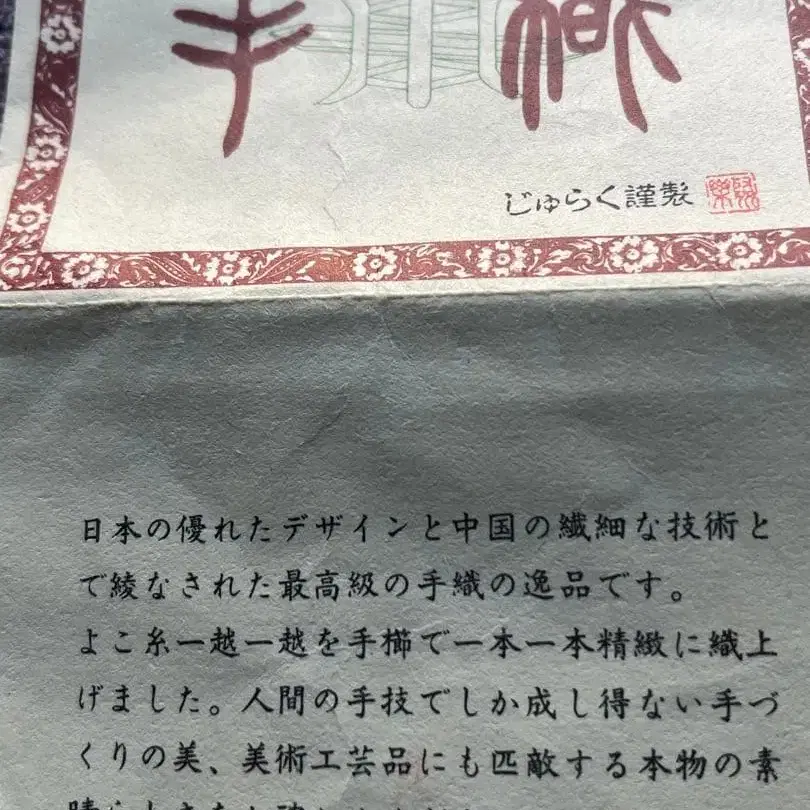 手織
じゅらく謹製
日本の優れたデザインと中国の繊細な技術と
で綾なされた最高級の手織の逸品です。
よこ糸一越一越を手櫛で一本一本精緻に織上
げました。人間の手技でしか成し得ない手づ
くりの美、美術工芸品にも匹敵する本物の素